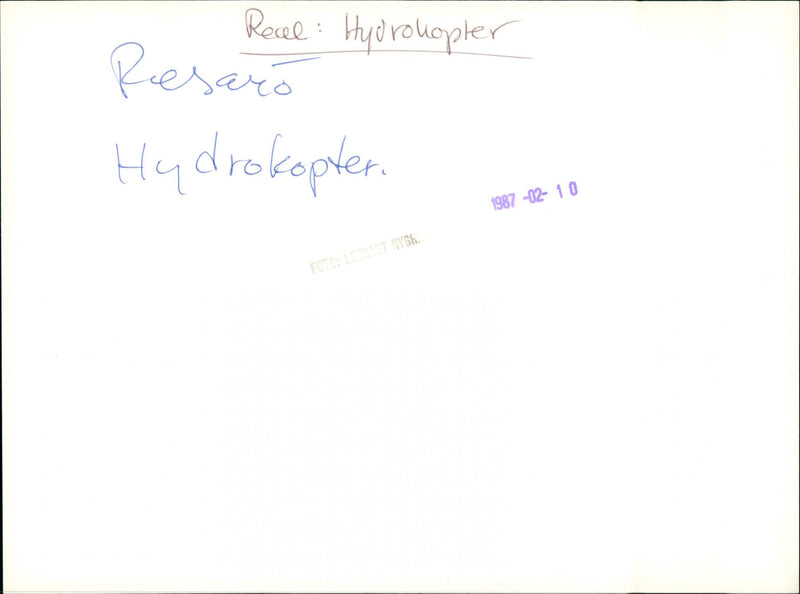 Reael: Hydrokopter
Resarö
Hydrokopter.
1987-02-10
FOTO: LENNART NYGR.